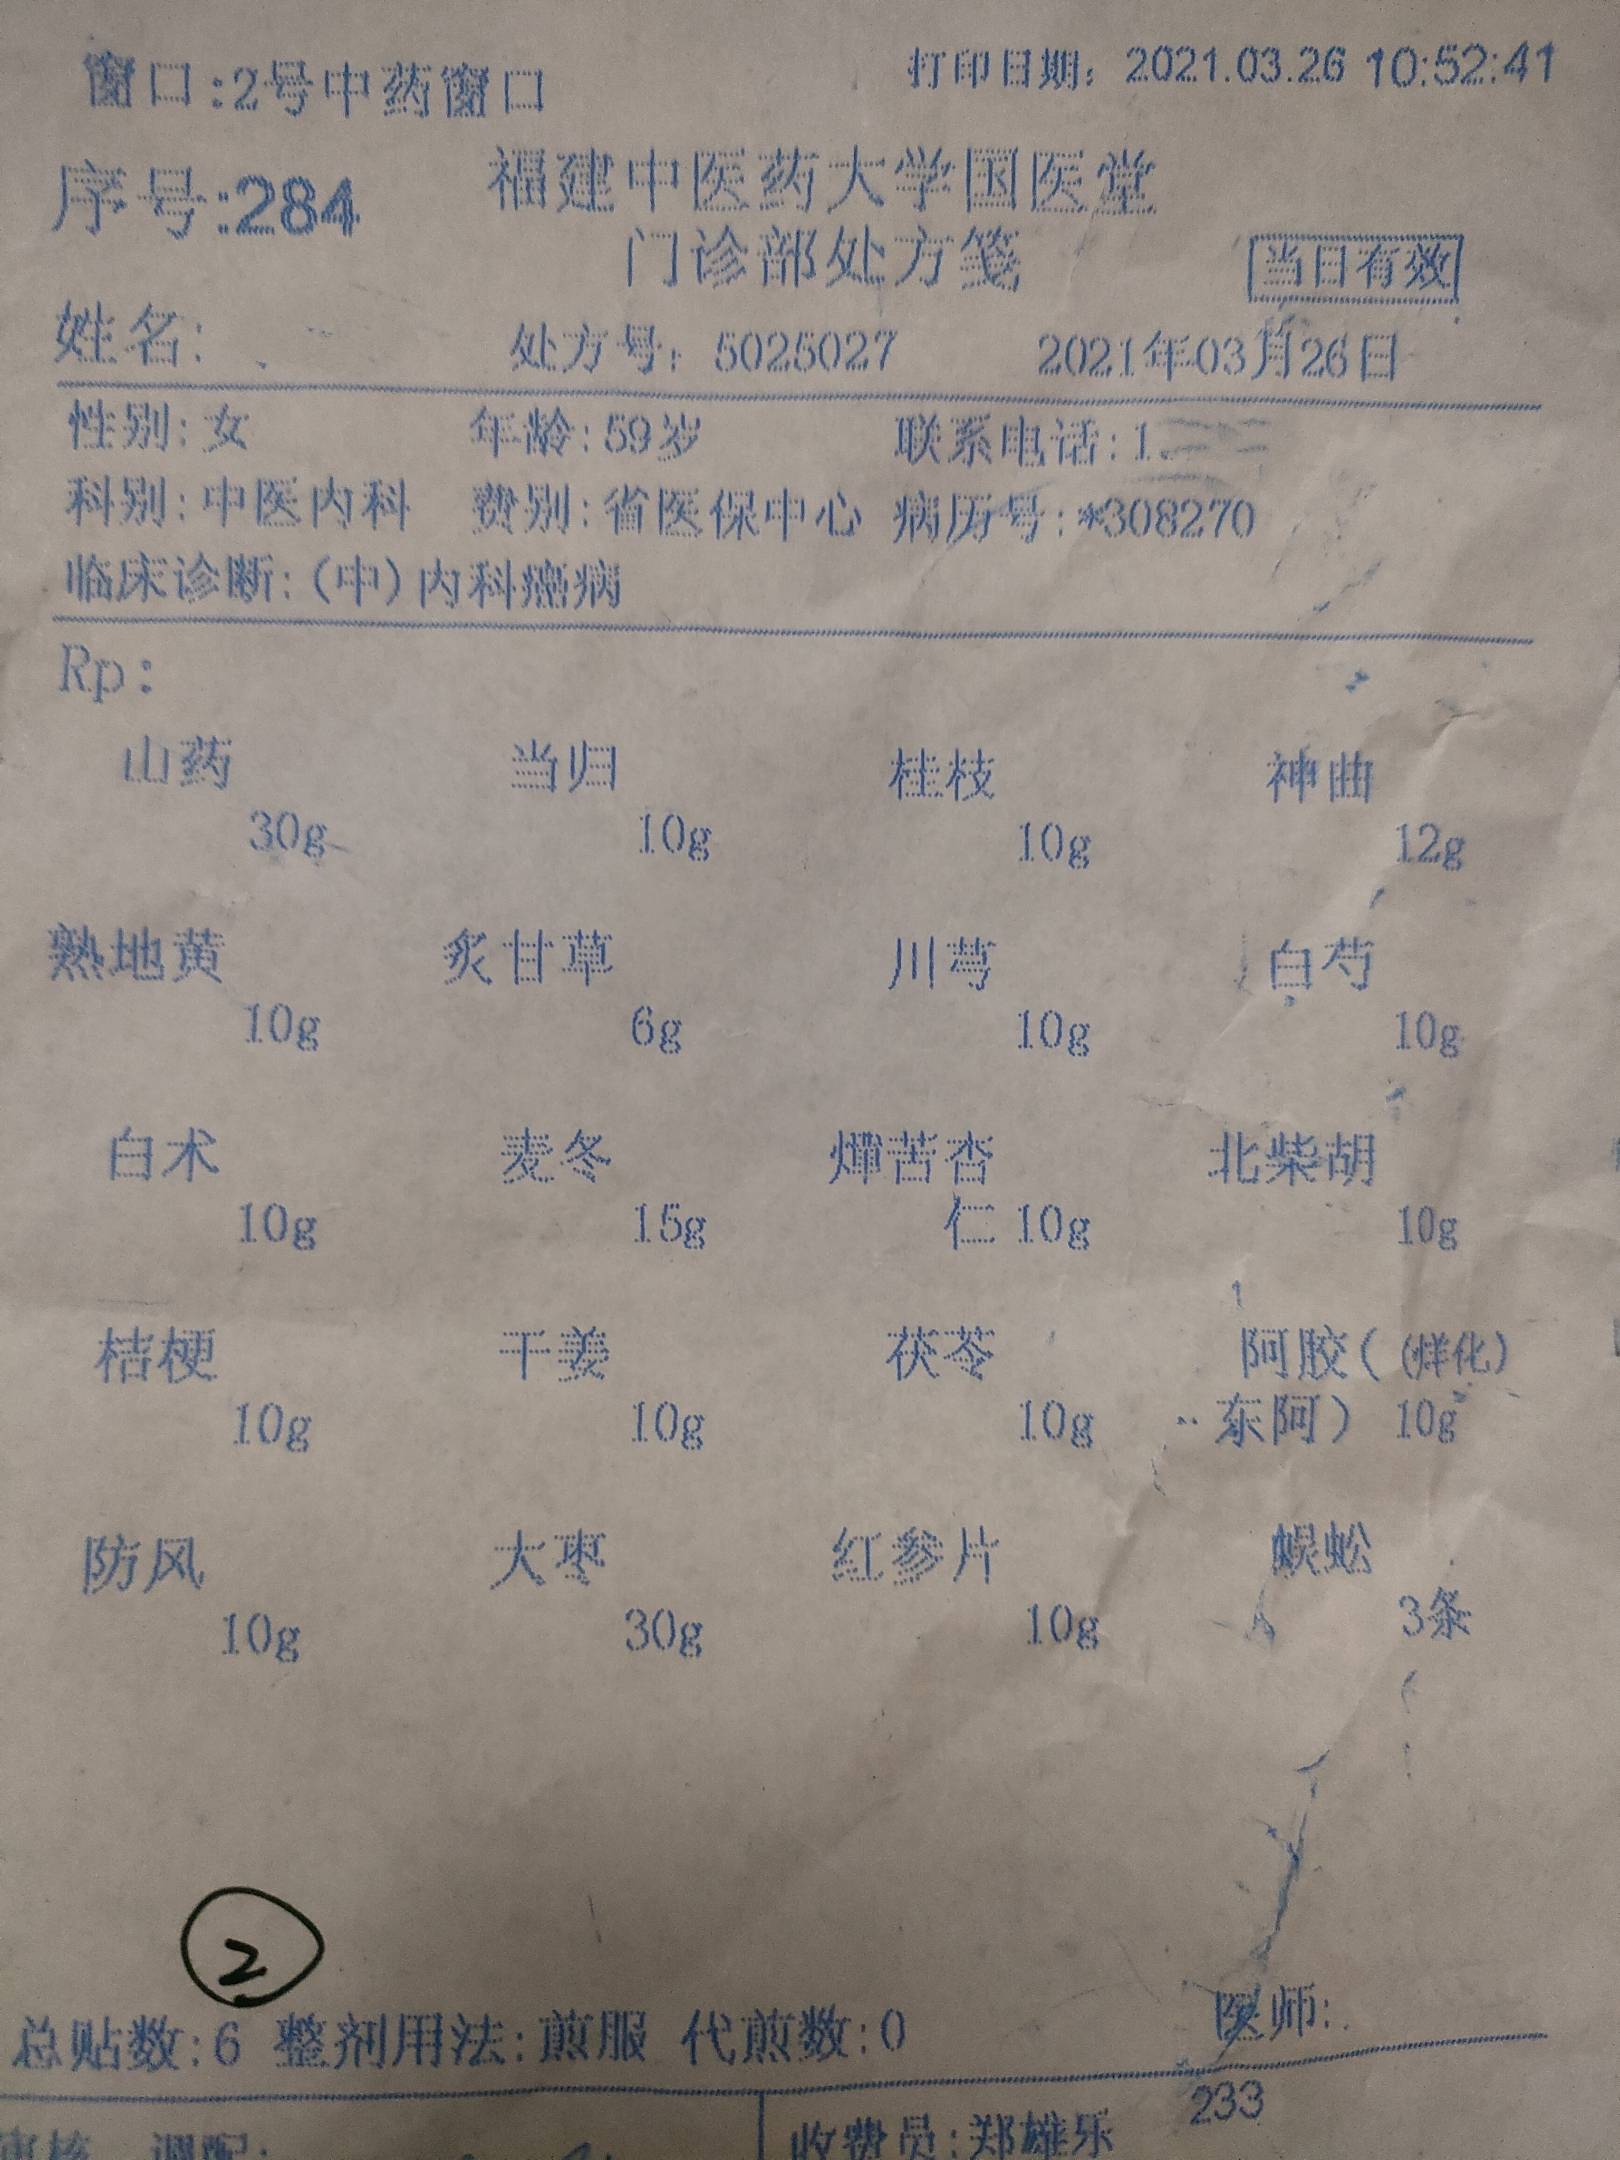 窗口:2号中药窗口 打印日期: 2021.03.26 10:52:41
序号:284 福建中医药大学国医堂
门诊部处方笺 当日有效
姓名: 处方号: 5025027 2021年03月26日
性别:女 年龄:59岁 联系电话:1
科别:中医内科 费别:省医保中心 病历号:*308270
临床诊断:(中)内科癌病
Rp:
山药 当归 桂枝 神曲
30g 10g 10g 12g
熟地黄 炙甘草 川芎 白芍
10g 6g 10g 10g
白术 麦冬 燀苦杏 北柴胡
10g 15g 仁 10g 10g
桔梗 干姜 茯苓 阿胶( (烊化)
10g 10g 10g 东阿) 10g
防风 大枣 红参片 蜈蚣
10g 30g 10g 3条
2
总贴数:6 整剂用法:煎服 代煎数:0 医师:
233
审核 调配: 收费员:郑雄乐